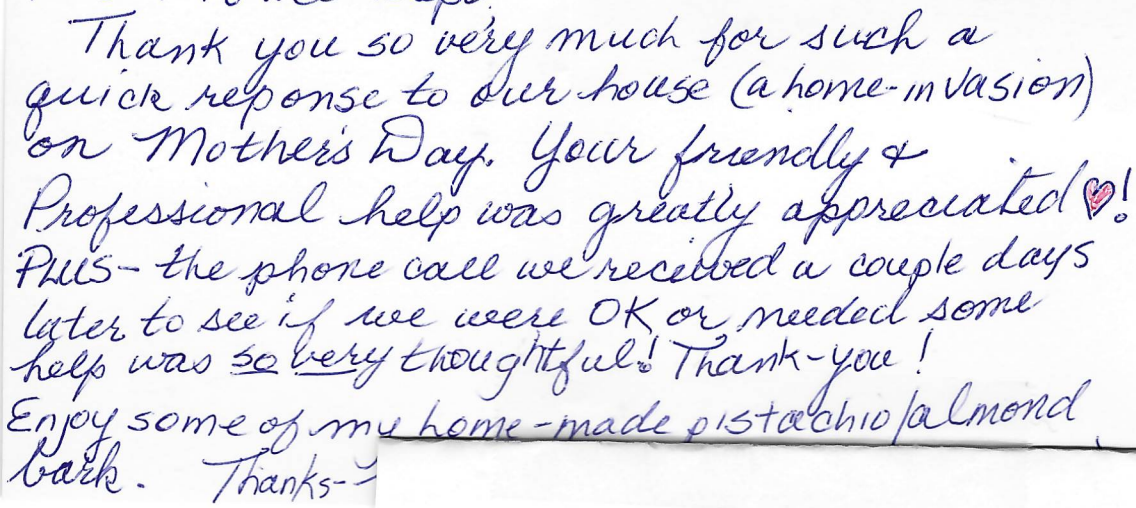 Thank you so very much for such a
quick reponse to our house (a home-invasion)
on Mother's Day. Your friendly &
Professional help was greatly appreciated ♡!
PLUS- the phone call we received a couple days
later to see if we were OK or needed some
help was so very thoughtful! Thank-you!
Enjoy some of my home-made pistachio/almond
bark. Thanks-